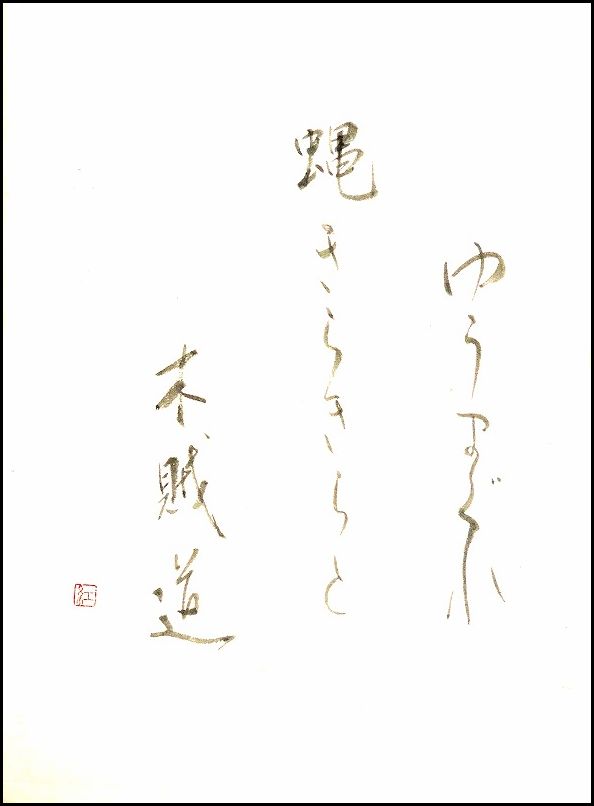 ゆうまぐれ
蝿きらきらと
木賊道